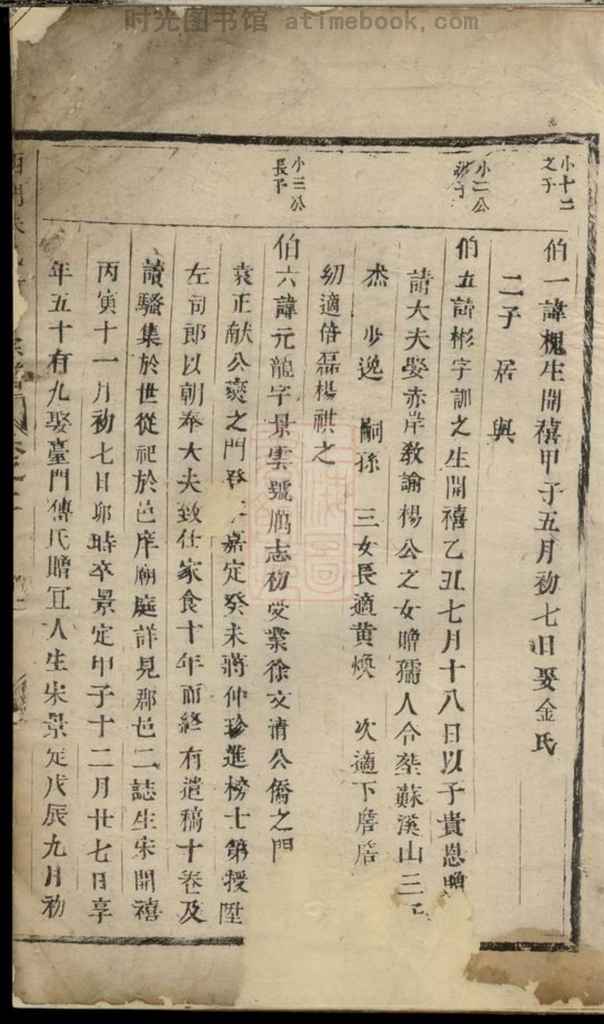 时光图书馆 atimebook.com
小十二
之子
伯一諱槐生開禧甲子五月初七日娶金氏
二子居與
小二公
伯五諱彬字訓之生開禧乙丑七月十八日以子貴恩贈
請大夫娶赤岸教諭楊公之女贈孺人合塟蘇溪山三子
杰 少逸 嗣孫 三女長適黄煥 次適下詹居
幼適倍磊楊祺之
小三公
長子
伯六諱元龍字景雲號厲志初受業徐文清公僑之門
袁正献公㷟之門登 嘉定癸未蔣仲珍進榜士第授陞
左司郎以朝奉大夫致仕家食十年而終有遺稿十卷及
讀騷集於世從祀於邑庠廟庭詳見郡邑二誌生宋開禧
丙寅十一月初七日卯時卒景定甲子十二月廿七日享
年五十有九娶臺門傅氏贈宜人生宋景定戊辰九月初